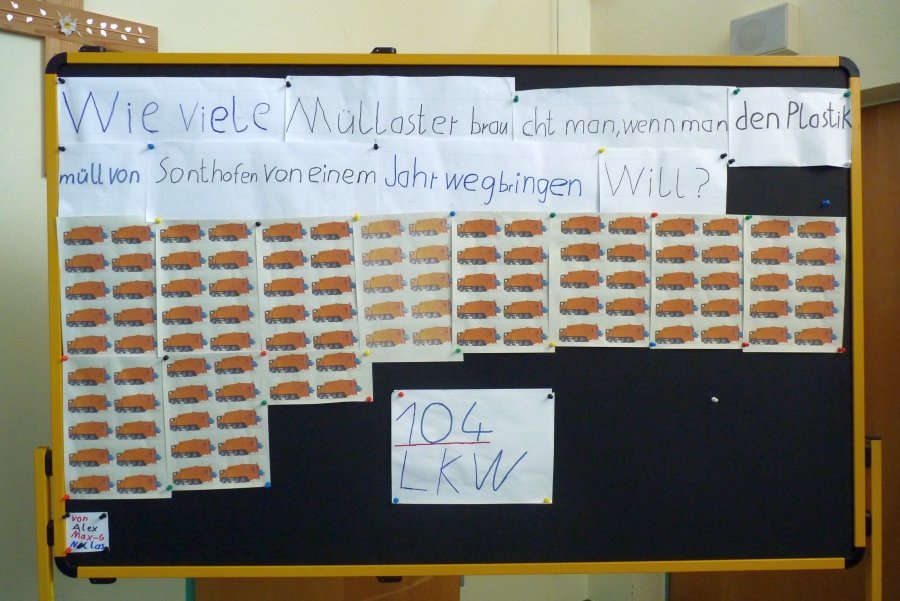 Wie viele Müllaster brau cht man, wenn man den Plastik
müll von Sonthofen von einem Jahr wegbringen Will?
104
LKW
von
Alex
Max-G
Niklas